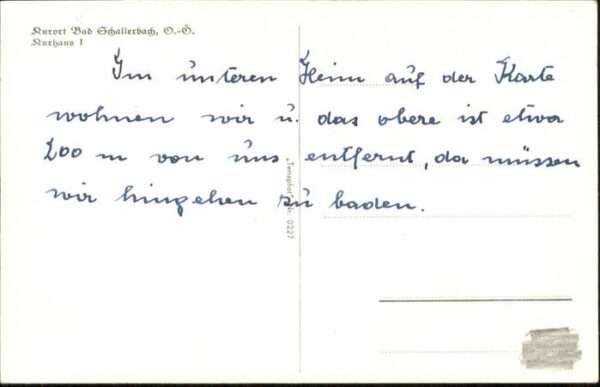 Kurort Bad Schallerbach, O.-Ö.
Kurhaus I
Im unteren Heim auf der Karte
wohnen wir u. das obere ist etwa
200 m von uns entfernt, da müssen
wir hingehen zu baden.
0227